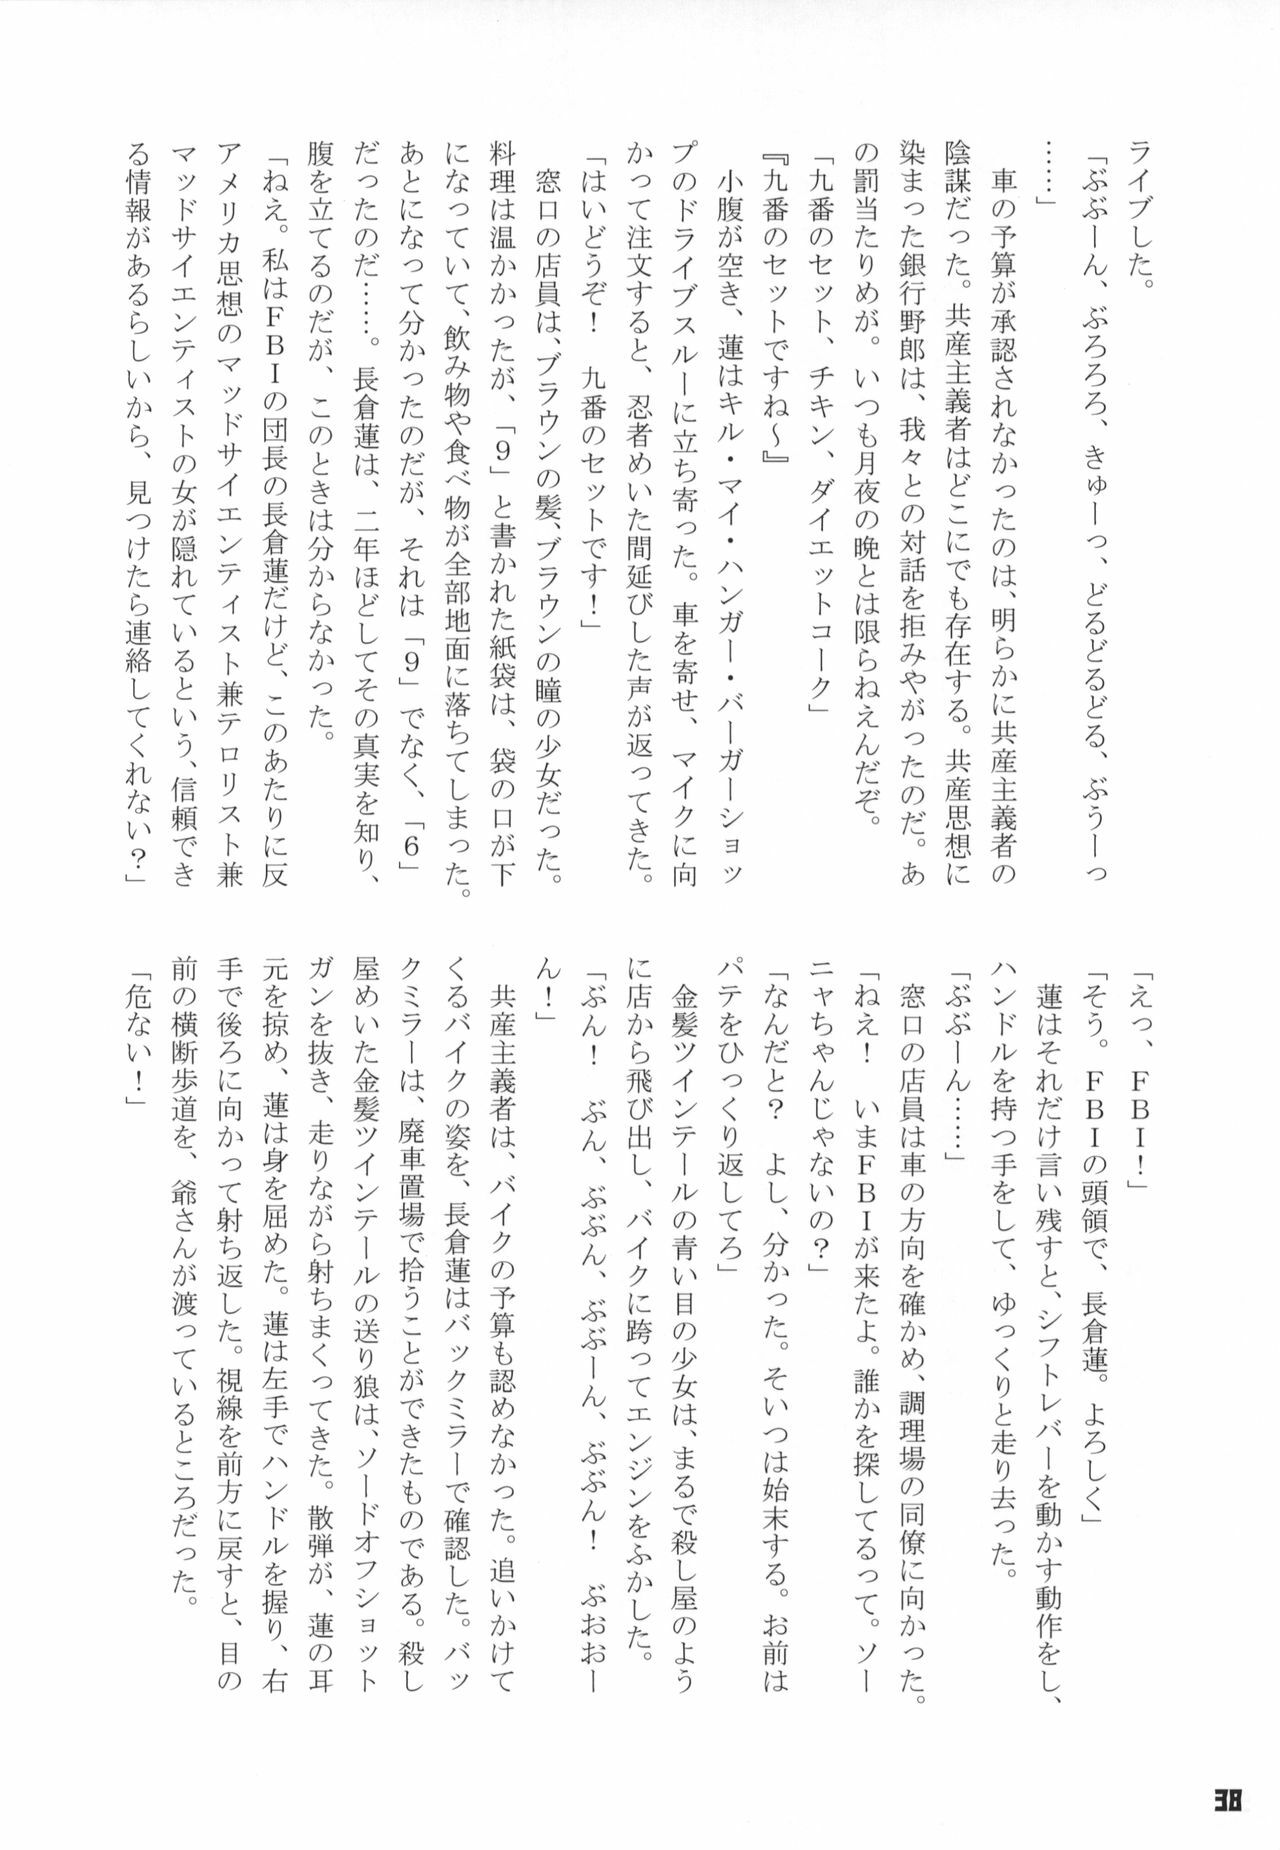 ライブした。
「ぶぶーん、ぶろろろ、きゅーっ、どるどるどる、ぶうーっ
……」
車の予算が承認されなかったのは、明らかに共産主義者の
陰謀だった。共産主義者はどこにでも存在する。共産思想に
染まった銀行野郎は、我々との対話を拒みやがったのだ。あ
の罰当たりめが。いつも月夜の晩とは限らねえんだぞ。
「九番のセット、チキン、ダイエットコーク」
『九番のセットですね～』
小腹が空き、蓮はキル・マイ・ハンガー・バーガーショッ
プのドライブスルーに立ち寄った。車を寄せ、マイクに向
かって注文すると、忍者めいた間延びした声が返ってきた。
「はいどうぞ！　九番のセットです！」
窓口の店員は、ブラウンの髪、ブラウンの瞳の少女だった。
料理は温かかったが、「９」と書かれた紙袋は、袋の口が下
になっていて、飲み物や食べ物が全部地面に落ちてしまった。
あとになって分かったのだが、それは「９」でなく、「６」
だったのだ……。長倉蓮は、二年ほどしてその真実を知り、
腹を立てるのだが、このときは分からなかった。
「ねえ。私はＦＢＩの団長の長倉蓮だけど、このあたりに反
アメリカ思想のマッドサイエンティスト兼テロリスト兼
マッドサイエンティストの女が隠れているという、信頼でき
る情報があるらしいから、見つけたら連絡してくれない？」
「えっ、ＦＢＩ！」
「そう。ＦＢＩの頭領で、長倉蓮。よろしく」
蓮はそれだけ言い残すと、シフトレバーを動かす動作をし、
ハンドルを持つ手をして、ゆっくりと走り去った。
「ぶぶーん……」
窓口の店員は車の方向を確かめ、調理場の同僚に向かった。
「ねえ！　いまＦＢＩが来たよ。誰かを探してるって。ソー
ニャちゃんじゃないの？」
「なんだと？　よし、分かった。そいつは始末する。お前は
パテをひっくり返してろ」
金髪ツインテールの青い目の少女は、まるで殺し屋のよう
に店から飛び出し、バイクに跨ってエンジンをふかした。
「ぶん！　ぶん、ぶぶん、ぶぶーん、ぶぶん！　ぶおおー
ん！」
共産主義者は、バイクの予算も認めなかった。追いかけて
くるバイクの姿を、長倉蓮はバックミラーで確認した。バッ
クミラーは、廃車置場で拾うことができたものである。殺し
屋めいた金髪ツインテールの送り狼は、ソードオフショット
ガンを抜き、走りながら射ちまくってきた。散弾が、蓮の耳
元を掠め、蓮は身を屈めた。蓮は左手でハンドルを握り、右
手で後ろに向かって射ち返した。視線を前方に戻すと、目の
前の横断歩道を、爺さんが渡っているところだった。
「危ない！」
38